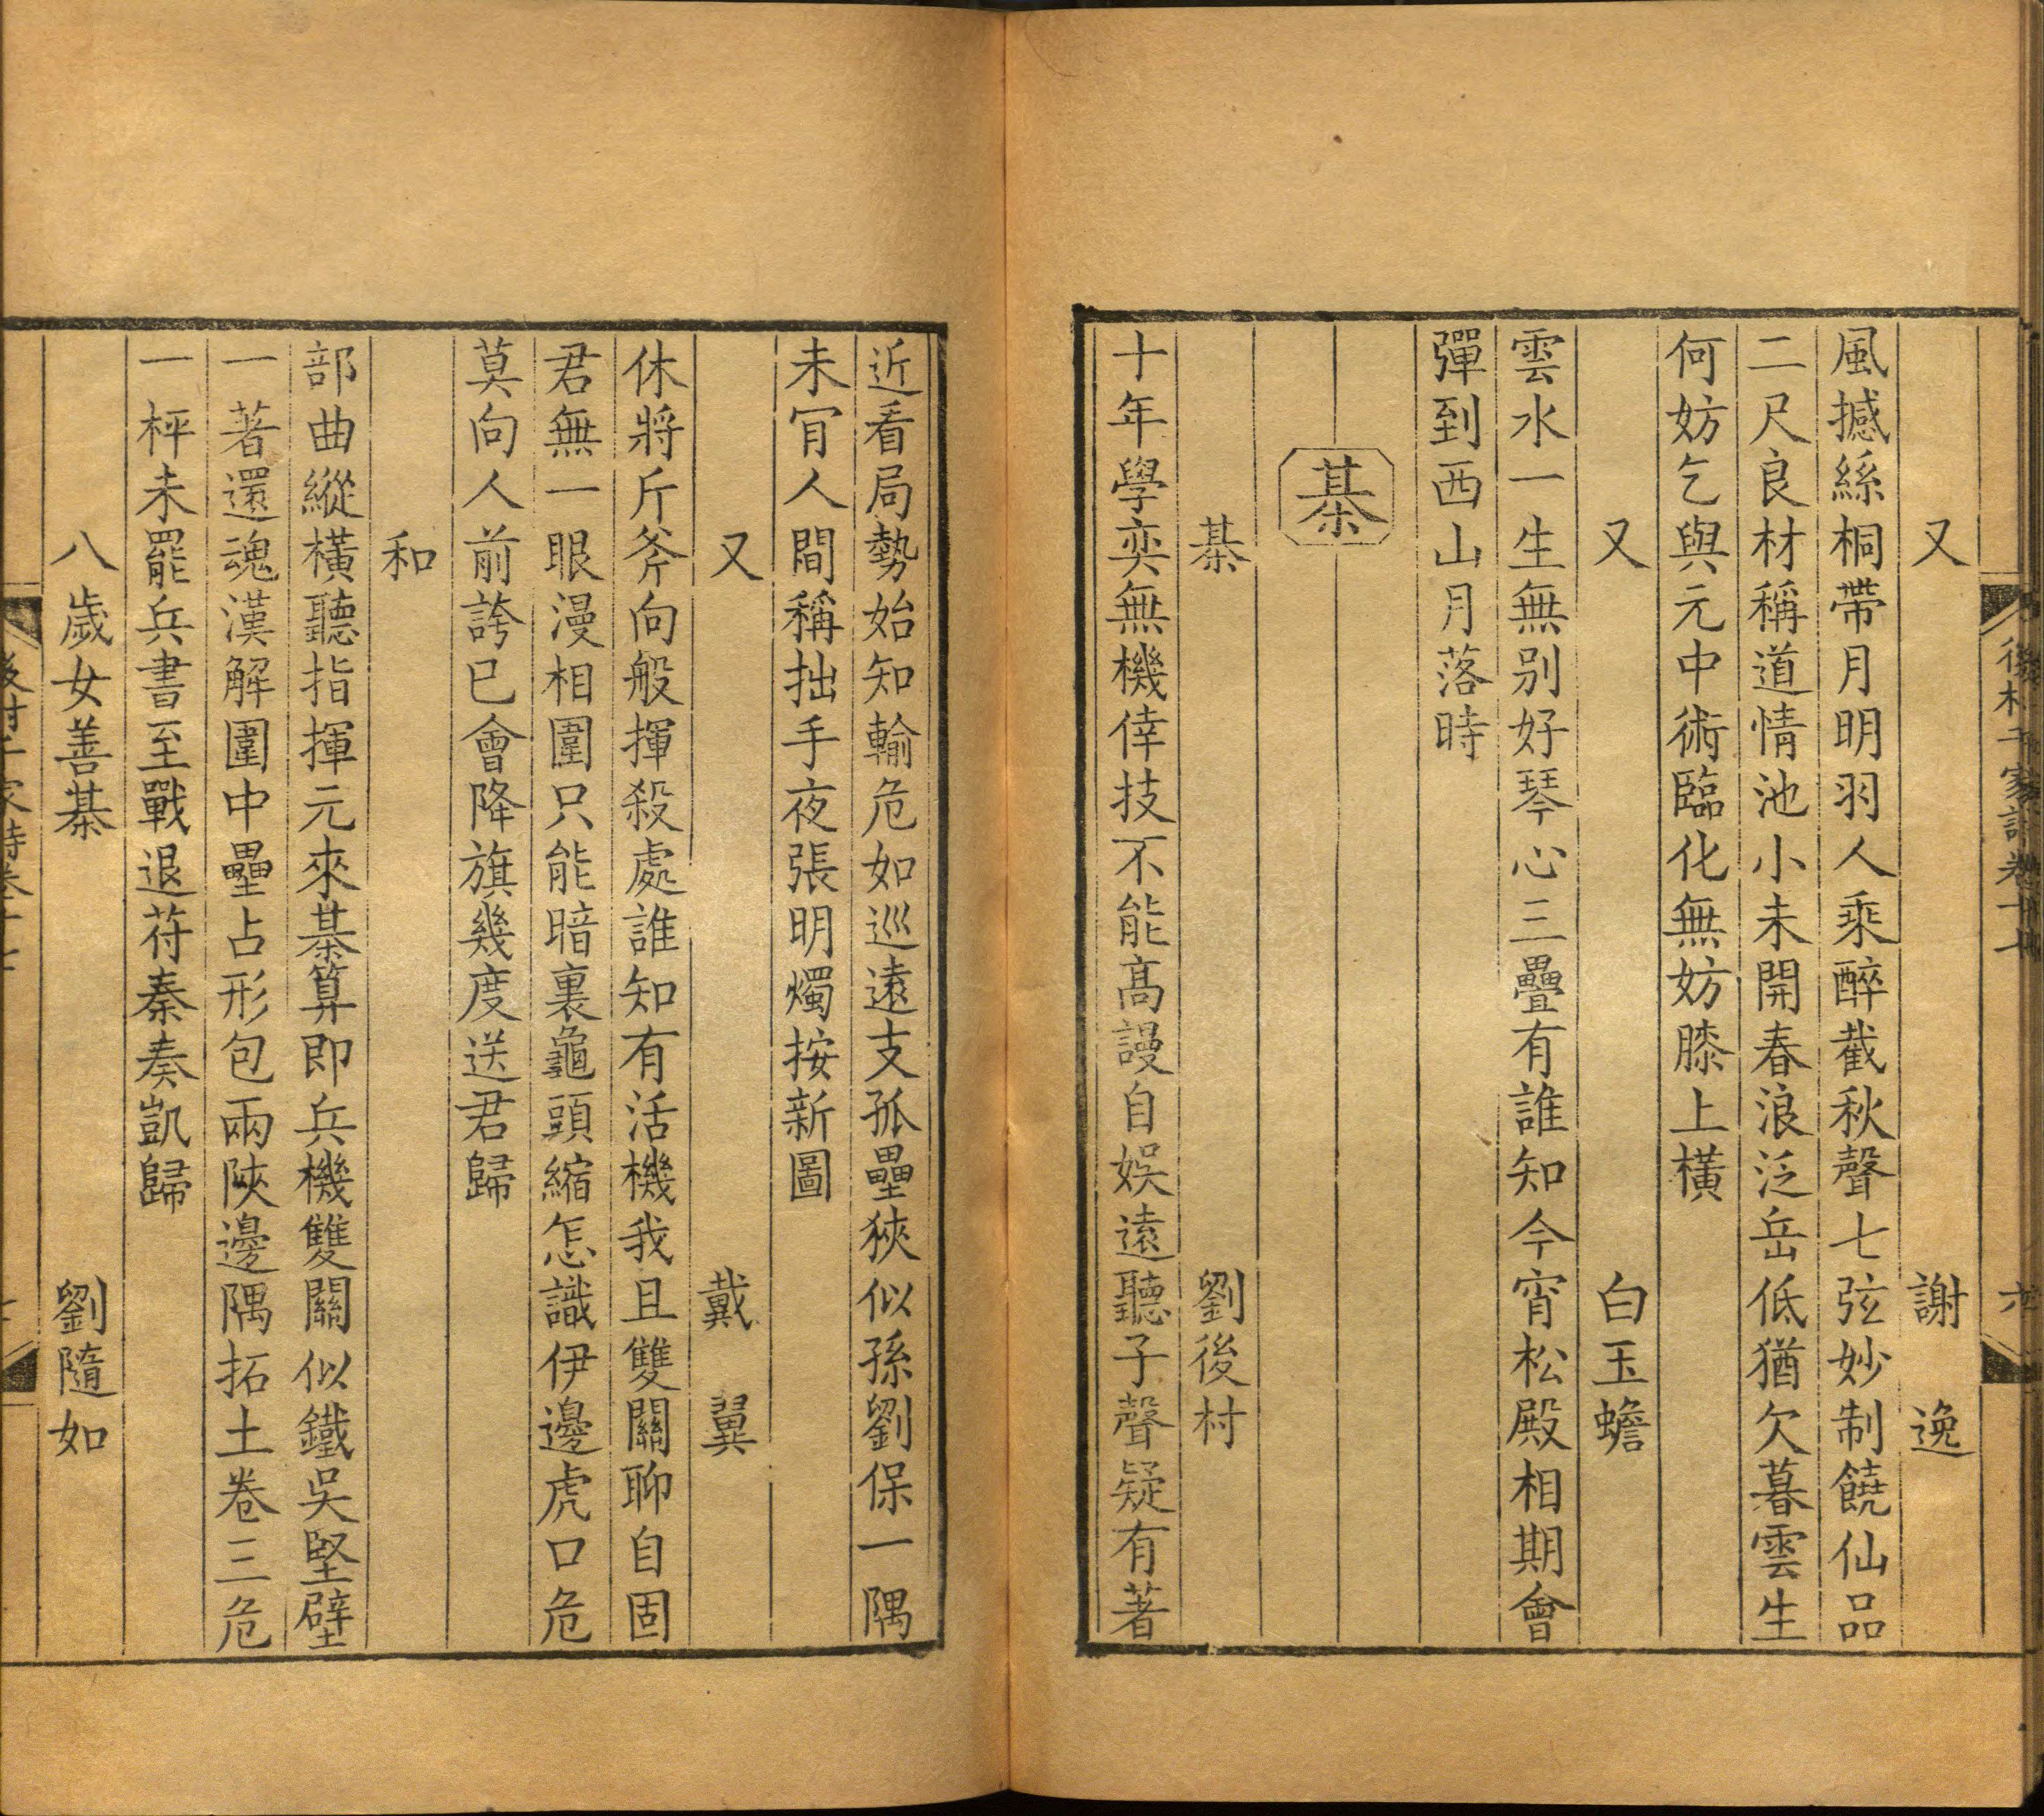 又 謝逸
風撼絲桐帶月明羽人乘醉截秋聲七弦妙制饒仙品
二尺良材稱道情池小未開春浪泛岳低猶欠暮雲生
何妨乞與元中術臨化無妨膝上橫
又 白玉蟾
雲水一生無别好琴心三疊有誰知今宵松殿相期會
彈到西山月落時
棊
棊 劉後村
十年學奕無機倖技不能高謾自娱遠聽子聲疑有著
近看局勢始知輸危如巡遠支孤壘狹似孫劉保一隅
未肎人間稱拙手夜張明燭按新圖
又 戴翼
休將斤斧向般揮殺處誰知有活機我且雙關聊自固
君無一眼漫相圍只能暗裏龜頭縮怎識伊邊虎口危
莫向人前誇已會降旗幾度送君歸
和
部曲縱橫聽指揮元來棊算即兵機雙關似鐵吳堅壁
一著還魂漢解圍中壘占形包兩陜邊隅拓土卷三危
一枰未罷兵書至戰退苻秦奏凱歸
八歲女善棊 劉隨如